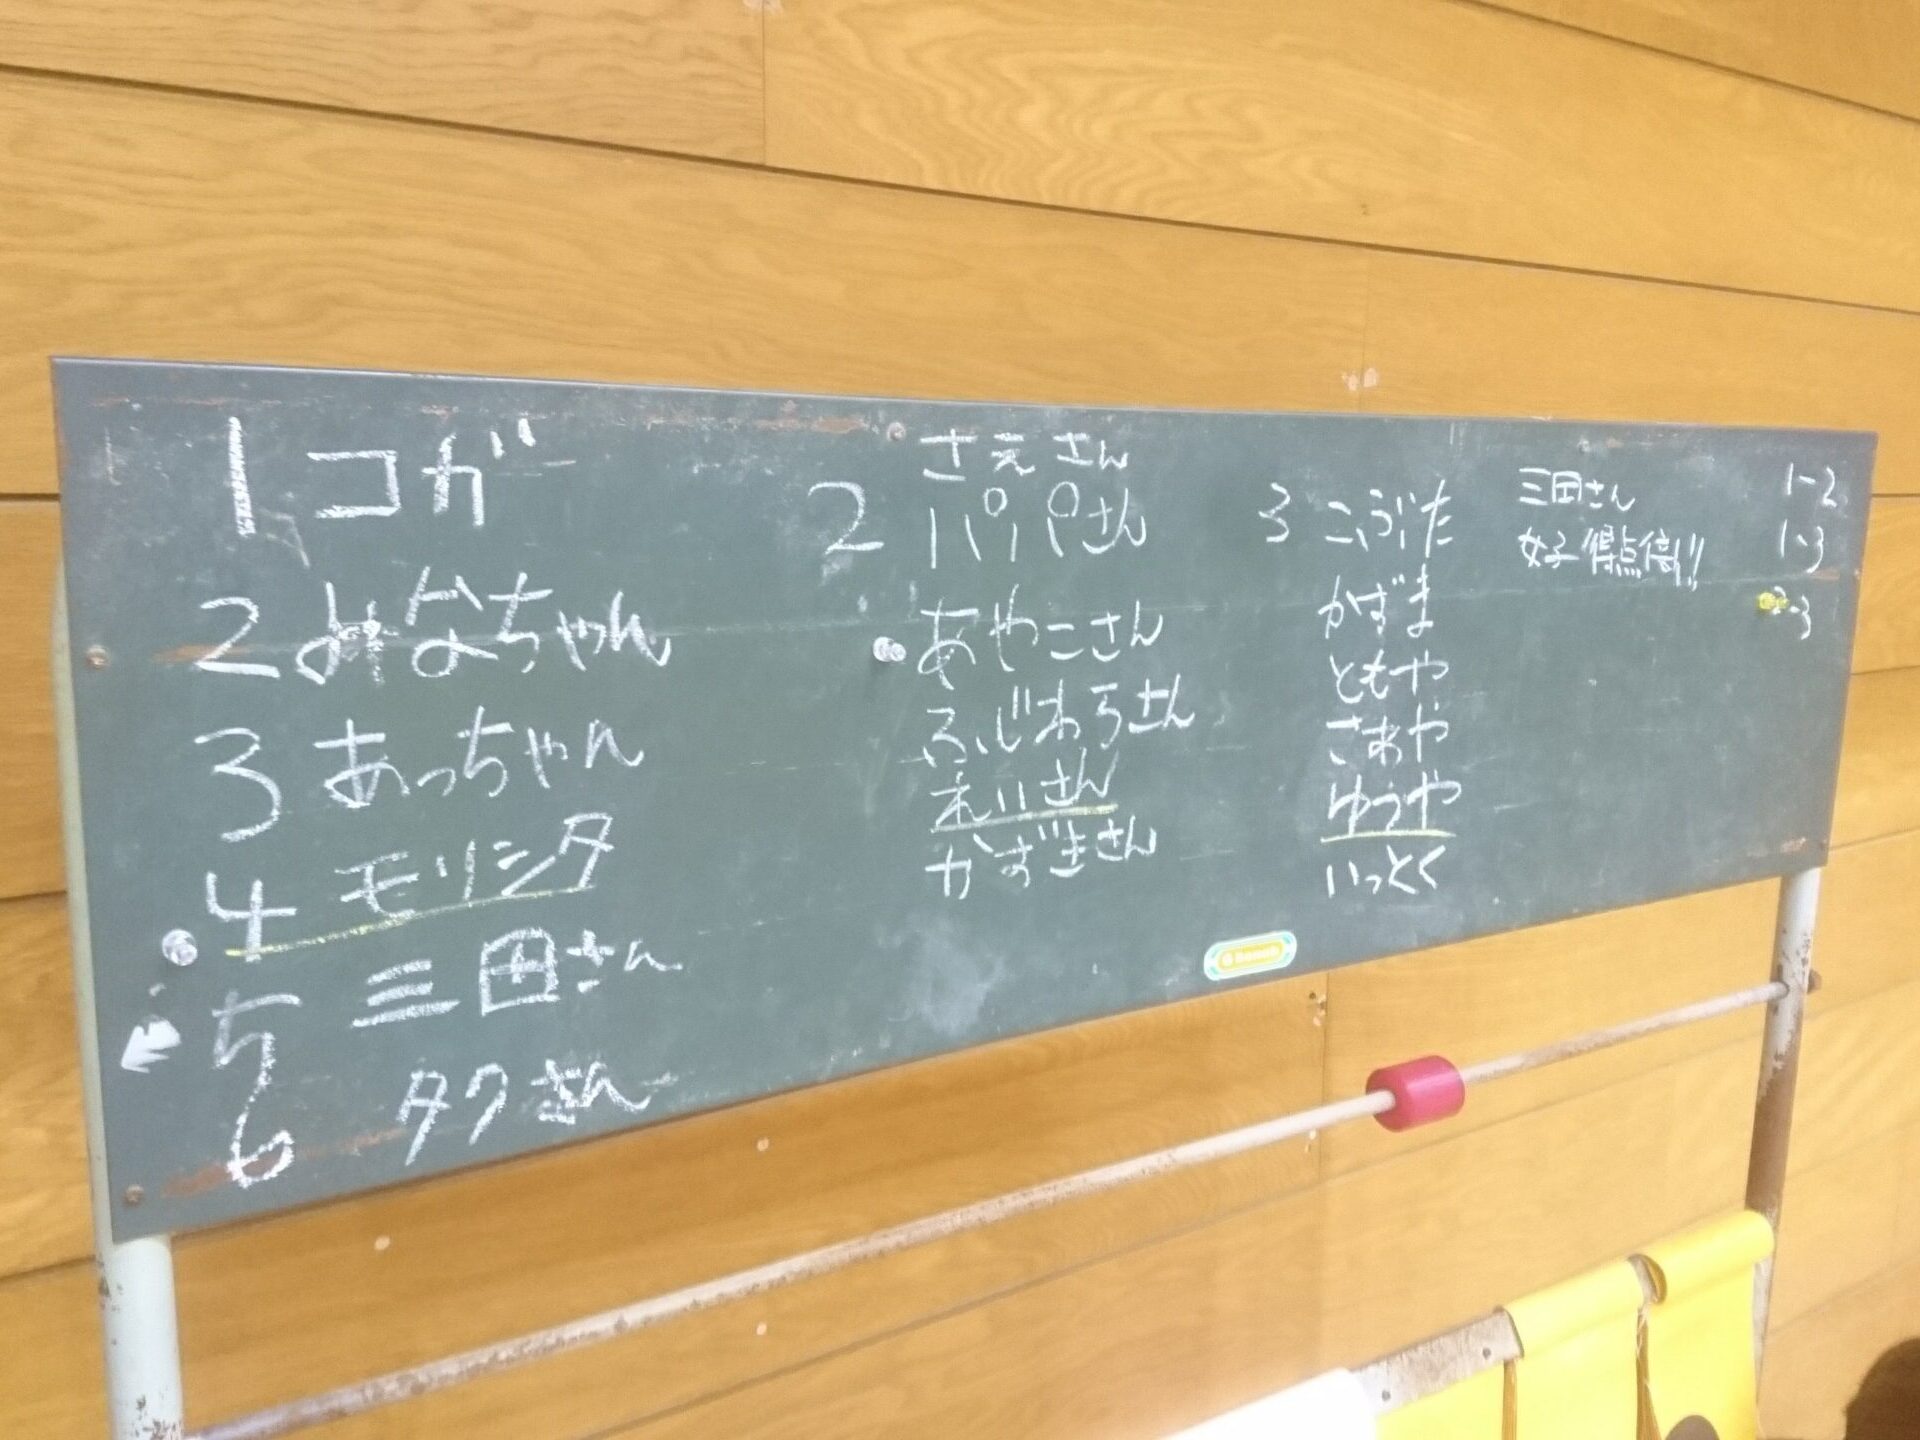 1 コガ
2 みなちゃん
3 あっちゃん
4 モリシタ
5 三田さん
6 タクさん
2
さえさん
パパさん
あやこさん
ふじわらさん
れいさん
かずきさん
3 こぶた
かずま
ともや
さおや
ゆうや
いっとく
三田さん
女子得点倍!!
1-2
1-3
2-3